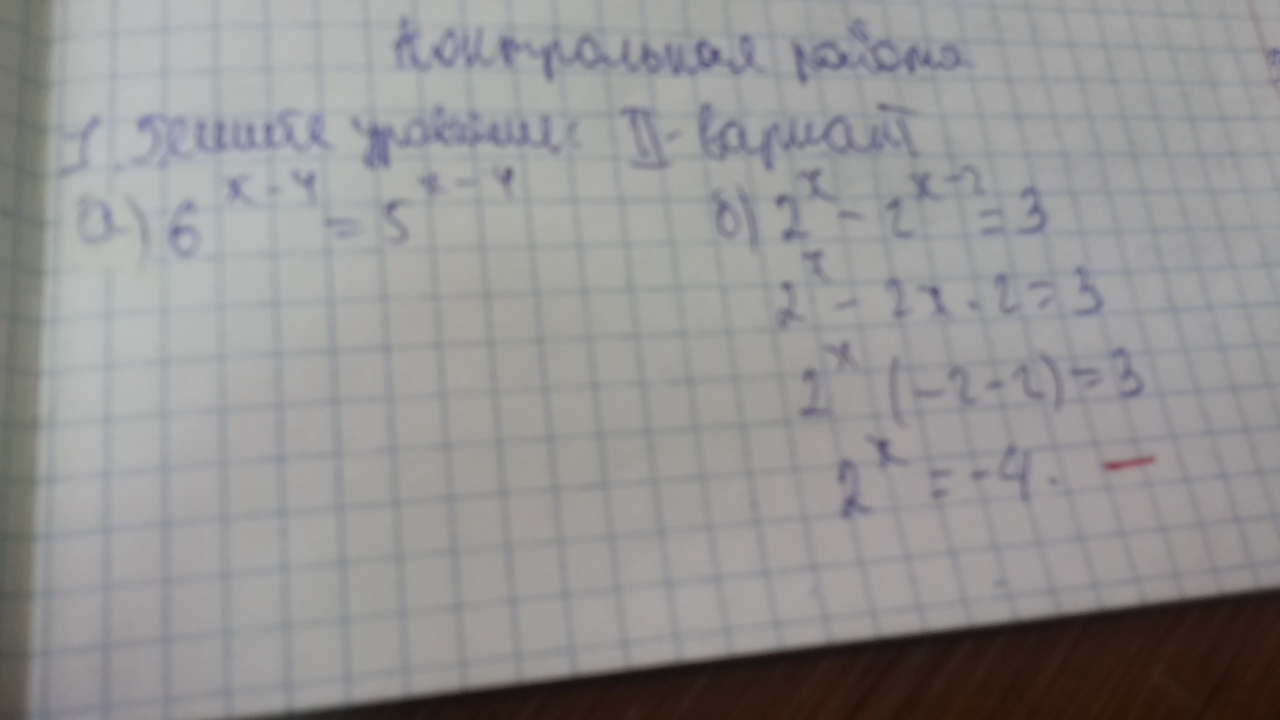 Контрольная работа
1. Решите уравнение: II-вариант
а) 6^(x-4) = 5^(x-4)
б) 2^x - 2^(x-2) = 3
2^x - 2x · 2 = 3
2^x (-2-2) = 3
2^x = -4.